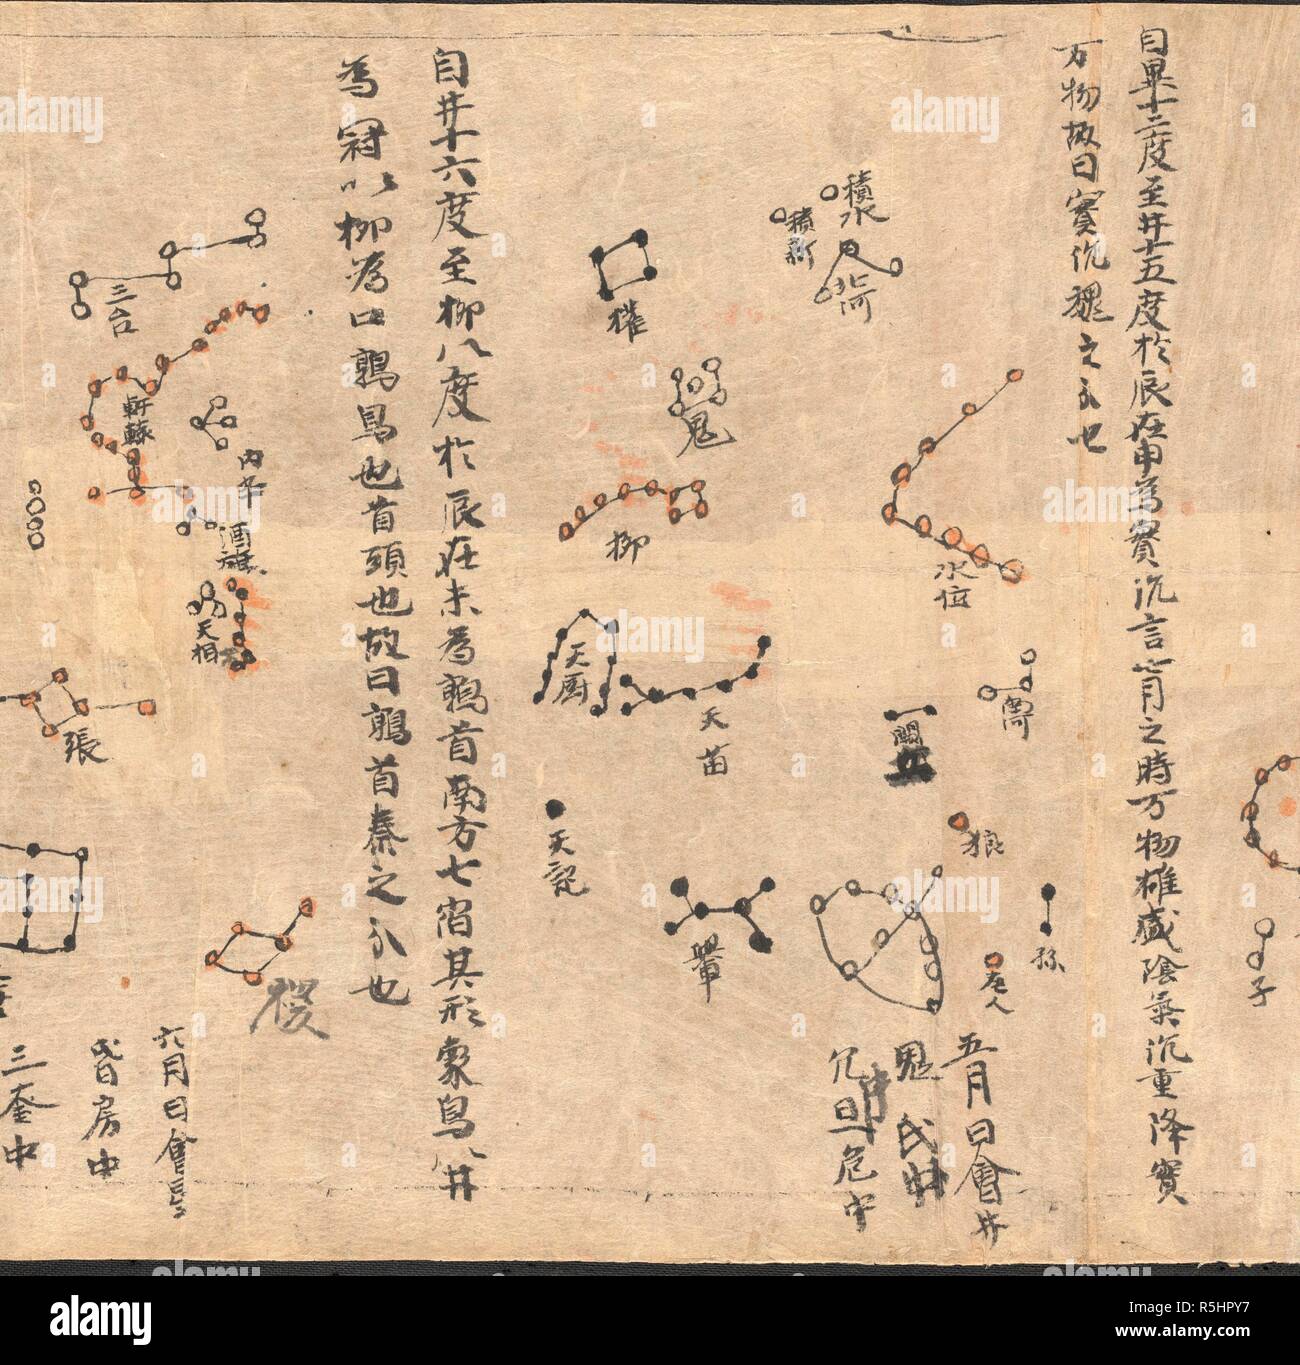 自畢十二度至井十五度於辰在申為實沉言七月之時万物雄盛陰氣沉重降實
万物故曰實沉魏之分也
積水
積薪
北河
水位
南河
狼
孫
老人
五月日會井
鬼氐中
旦危中
子
權
鬼
柳
天廚
天苗
天記
自井十六度至柳八度於辰在未為鶉首南方七宿其形象鳥以井
為冠以柳為口鶉鳥也首頭也故曰鶉首秦之分也
三台
軒轅
內平
酒旗
天相
張
稷
六月日會
昏房中
三奎中
alamy
a
alamy
Image ID: R5HPY7
www.alamy.com